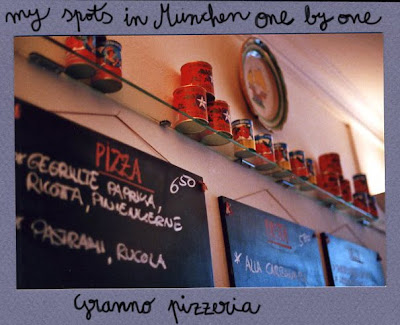 my spots in München one by one
PIZZA
* GEGRILLTE PAPRIKA, 6.50
RICOTTA, PINIENKERNE
* PASTRAMI, RUCOLA
* ALLA
Granno pizzeria